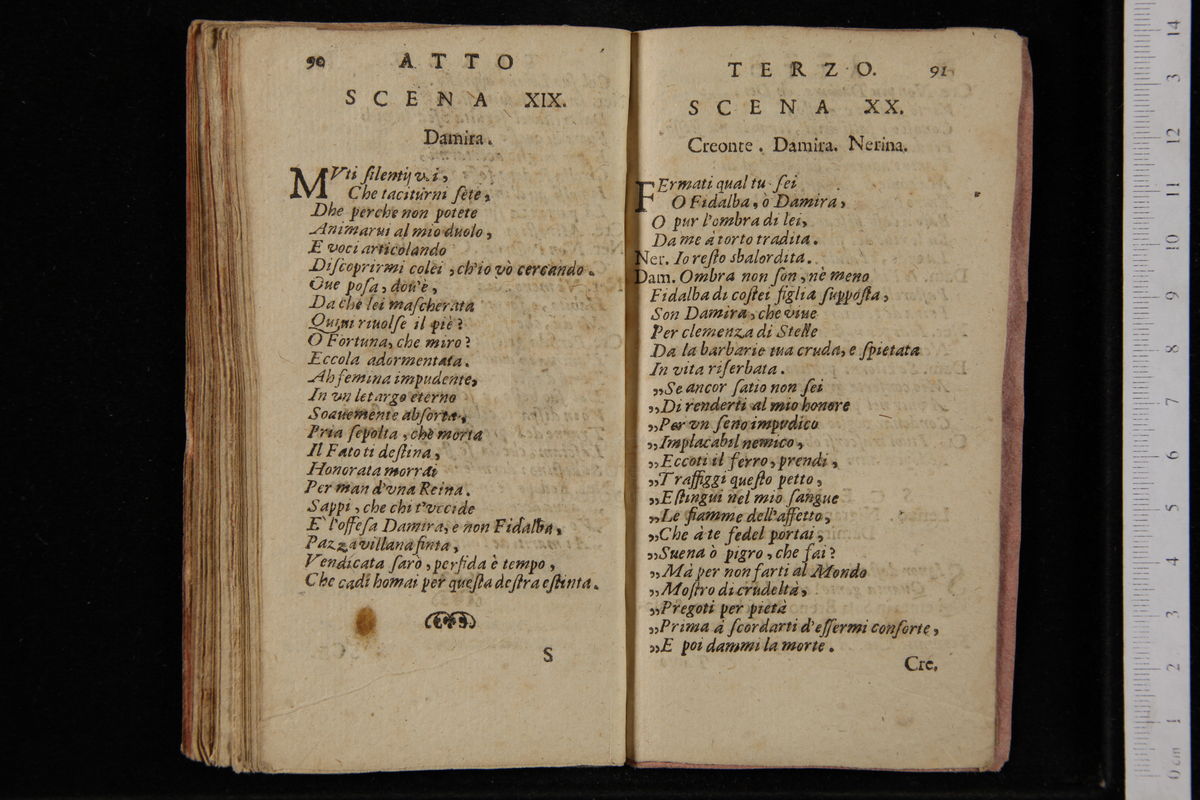 90 ATTO
SCENA XIX.
Damira.
MVti silentij voi,
Che taciturni sete,
Dhe perche non potete
Animarui al mio duolo,
E voci articolando
Discoprirmi colei, ch'io vò cercando.
Oue posa, dou'è,
Da che lei mascherata
Quiui riuolse il piè?
O Fortuna, che miro?
Eccola adormentata.
Ah femina impudente,
In vn letargo eterno
Soauemente absorta,
Pria sepolta, che morta
Il Fato ti destina,
Honorata morrai
Per man d'vna Reina.
Sappi, che chi t'vccide
E' l'offesa Damira, e non Fidalba,
Pazza villana finta,
Vendicata sarò, perfida è tempo,
Che cadi homai per questa destra estinta.
S
TERZO. 91
SCENA XX.
Creonte. Damira. Nerina.
FErmati qual tu sei
O Fidalba, ò Damira,
O pur l'ombra di lei,
Da me à torto tradita.
Ner. Io resto sbalordita.
Dam. Ombra non son, nè meno
Fidalba di costei figlia supposta,
Son Damira, che viue
Per clemenza di Stelle
Da la barbarie tua cruda, e spietata
In vita riserbata.
„Se ancor satio non sei
„Di renderti al mio honore
„Per vn seno impudico
„Implacabil nemico,
„Eccoti il ferro, prendi,
„Traffiggi questo petto,
„Estingui nel mio sangue
„Le fiamme dell'affetto,
„Che à te fedel portai,
„Suena ò pigro, che fai?
„Ma per non farti al Mondo
„Mostro di crudeltà,
„Pregoti per pietà
„Prima à scordarti d'essermi consorte,
„E poi dammi la morte.
Cre.
14
13
12
11
10
9
8
7
6
5
4
3
2
1
0 cm